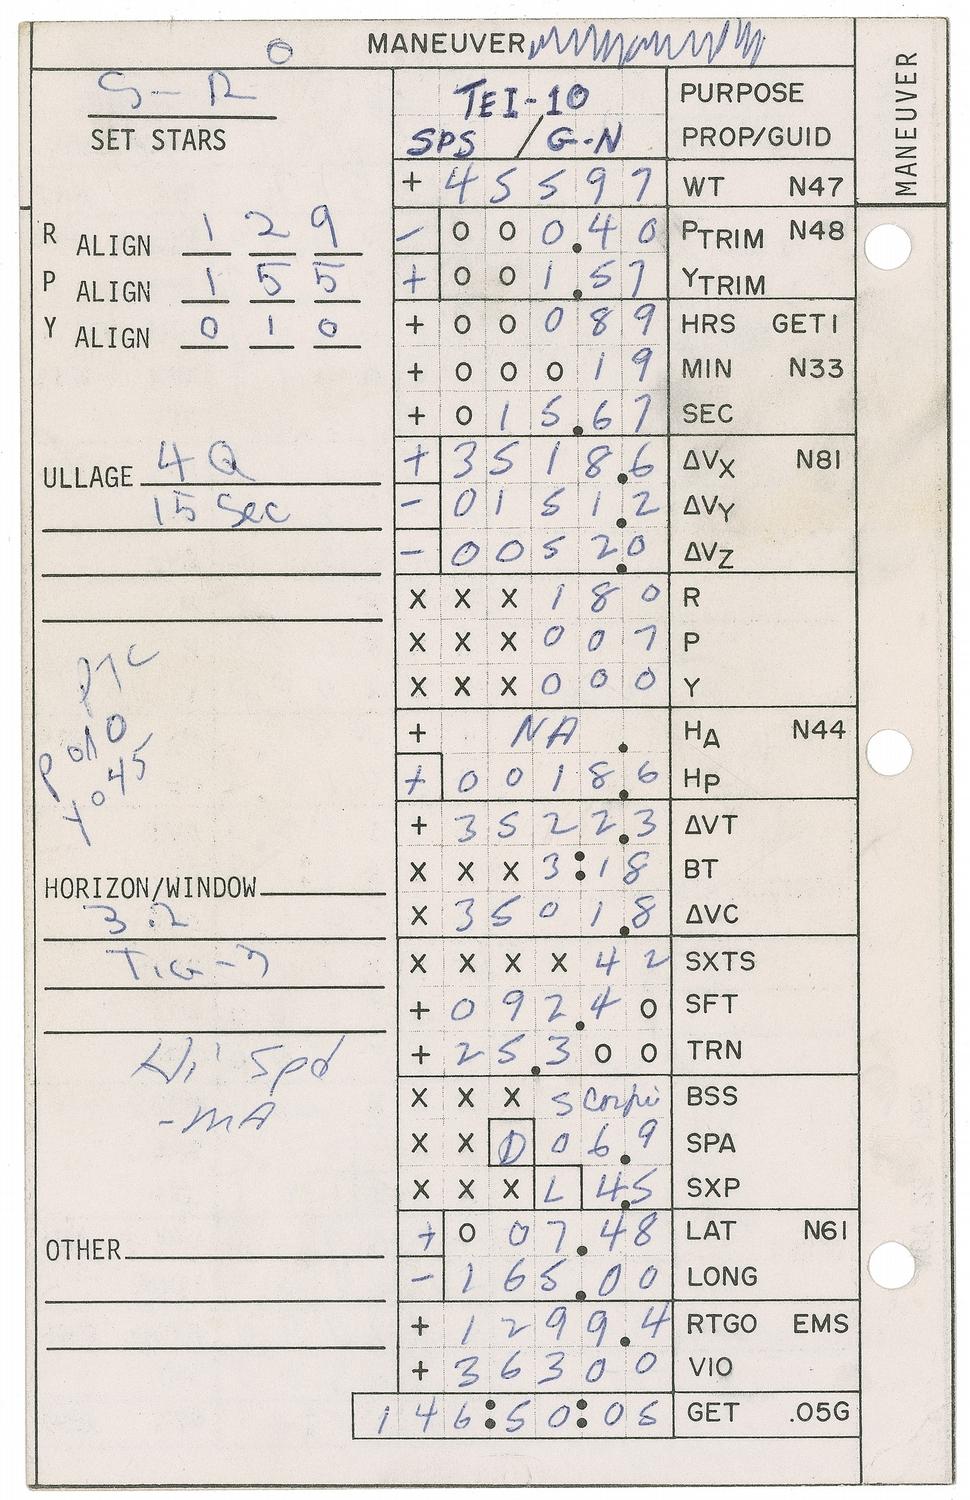 MANEUVER
O
MANEUVER
S-R
SET STARS
TEI-10 PURPOSE
SPS / G-N PROP/GUID
+ 4 5 5 9 7 WT N47
R ALIGN 1 2 9
P ALIGN 1 5 5
Y ALIGN 0 1 0
- 0 0 0.4 0 PTRIM N48
+ 0 0 1.5 7 YTRIM
+ 0 0 0 8 9 HRS GETI
+ 0 0 0 1 9 MIN N33
+ 0 1 5.6 7 SEC
ULLAGE 4 Q
15 Sec
+ 3 5 1 8.6 ΔVX N81
- 0 1 5 1.2 ΔVY
- 0 0 5 2.0 ΔVZ
X X X 1 8 0 R
X X X 0 0 7 P
X X X 0 0 0 Y
PTC
P 010
Y 045
+ NA . HA N44
+ 0 0 1 8.6 HP
+ 3 5 2 2.3 ΔVT
X X X 3:1 8 BT
X 3 5 0 1.8 ΔVC
HORIZON/WINDOW
3.2
TIG-3
X X X X 4 2 SXTS
+ 0 9 2.4 0 SFT
+ 2 5.3 0 0 TRN
Hi Spd
-MA
X X X Scorpii BSS
X X D 0 6.9 SPA
X X X L 4.5 SXP
OTHER
+ 0 0 7.4 8 LAT N61
- 1 6 5.0 0 LONG
+ 1 2 9 9.4 RTGO EMS
+ 3 6 3 0 0 VIO
1 4 6:5 0:0 5 GET .05G